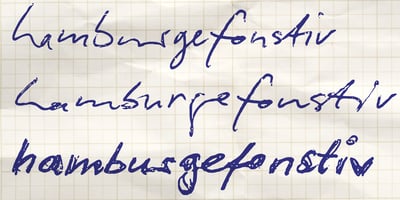 hamburgefonstiv
hamburgefonstiv
hamburgefonstiv